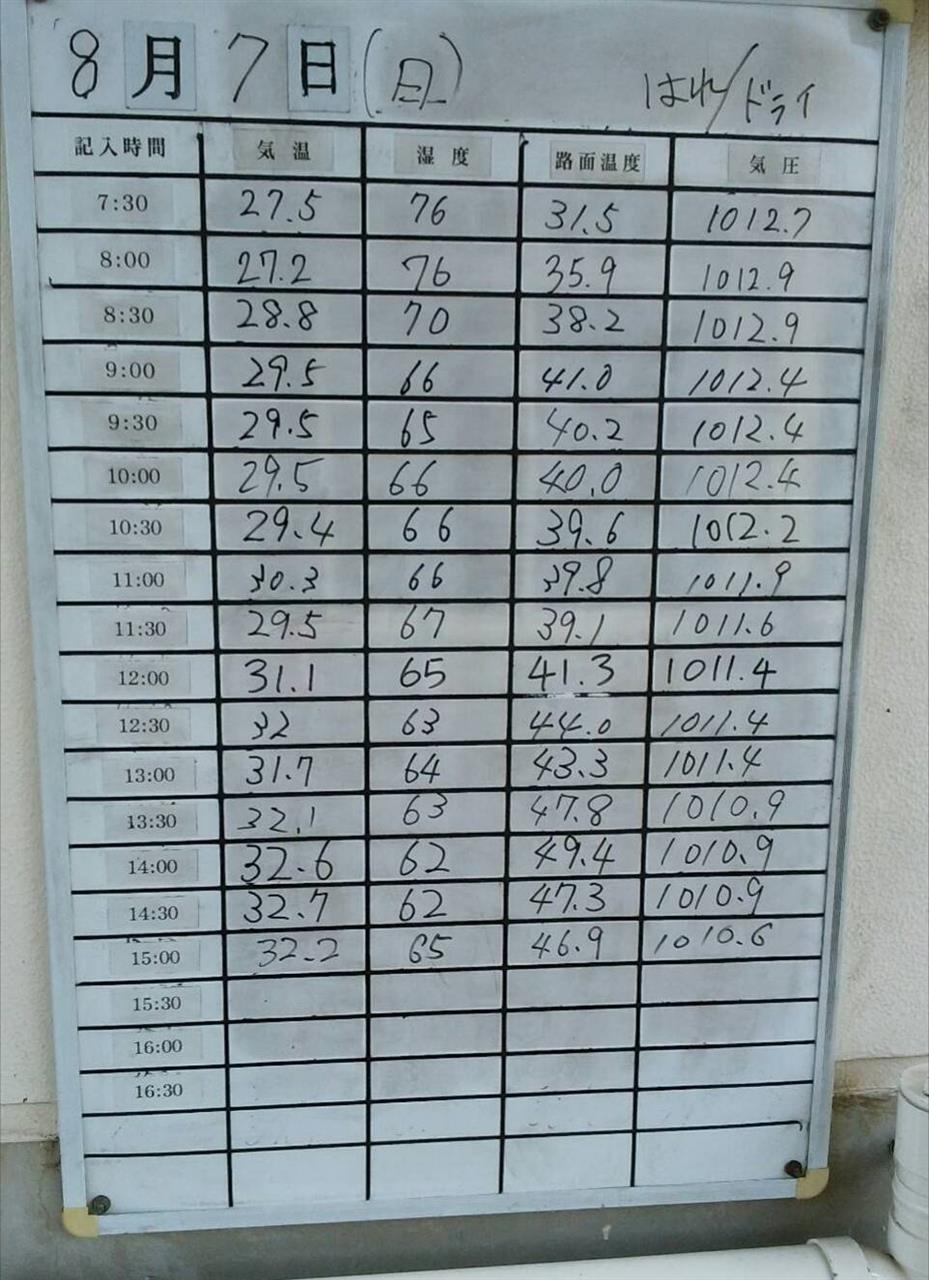 8月7日(日) はれ/ドライ
記入時間 気温 湿度 路面温度 気圧
7:30 27.5 76 31.5 1012.7
8:00 27.2 76 35.9 1012.9
8:30 28.8 70 38.2 1012.9
9:00 29.5 66 41.0 1012.4
9:30 29.5 65 40.2 1012.4
10:00 29.5 66 40.0 1012.4
10:30 29.4 66 39.6 1012.2
11:00 30.3 66 39.8 1011.9
11:30 29.5 67 39.1 1011.6
12:00 31.1 65 41.3 1011.4
12:30 32 63 44.0 1011.4
13:00 31.7 64 43.3 1011.4
13:30 32.1 63 47.8 1010.9
14:00 32.6 62 49.4 1010.9
14:30 32.7 62 47.3 1010.9
15:00 32.2 65 46.9 1010.6
15:30
16:00
16:30